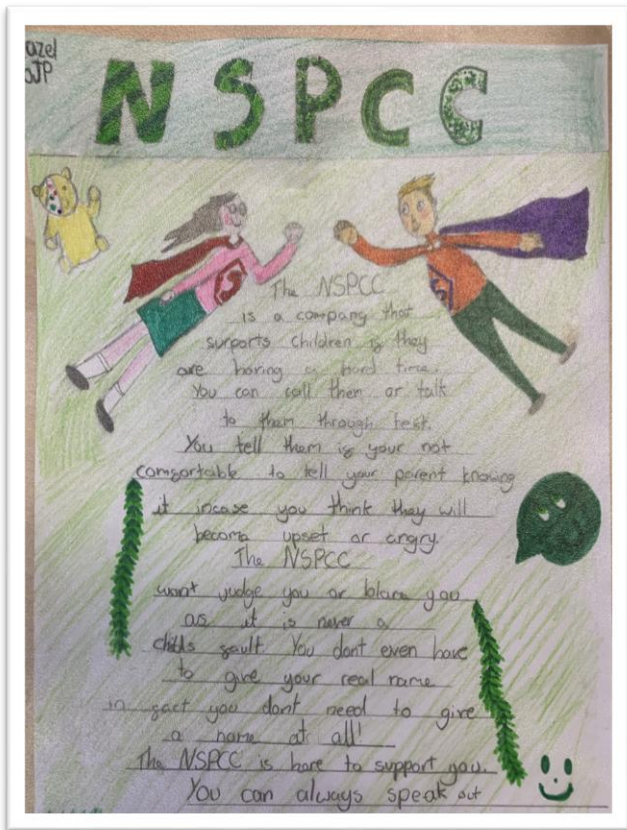 azel
JP
NSPCC
The NSPCC
is a company that
surports children is they
are having a hard time.
You can call them or talk
to them through text.
You tell them is your not
comsortable to tell your parent knowing
it incase you think they will
become upset or angry.
The NSPCC
wont judge you or blame you
as it is never a
childs sault. You dont even have
to give your real name
in sact you dont need to give
a name at all!
The NSPCC is here to support you.
You can always speak out